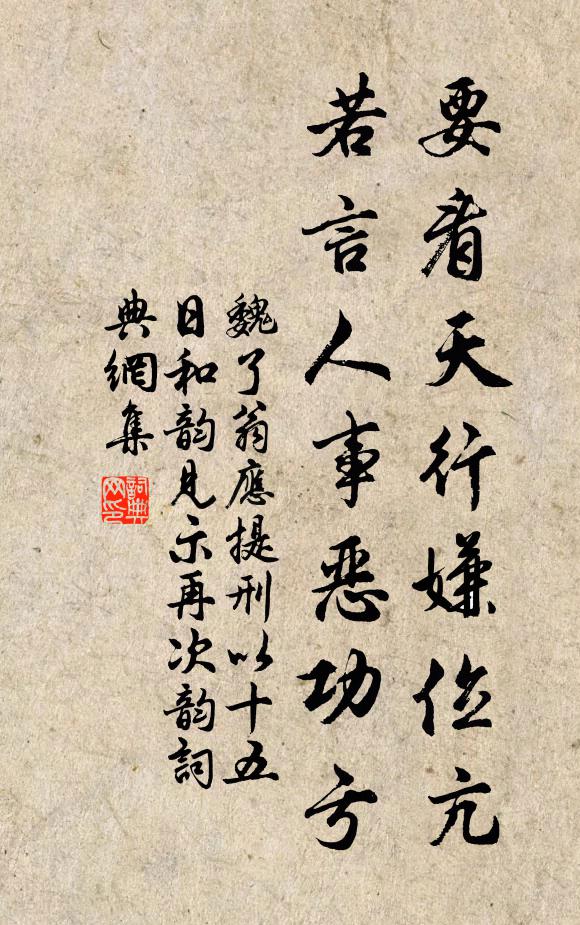 要看天行嫌位亢
若言人事惡功亏
魏了翁應提刑以十五
日和韵見示再次韵詞
典網集
詞典
网印